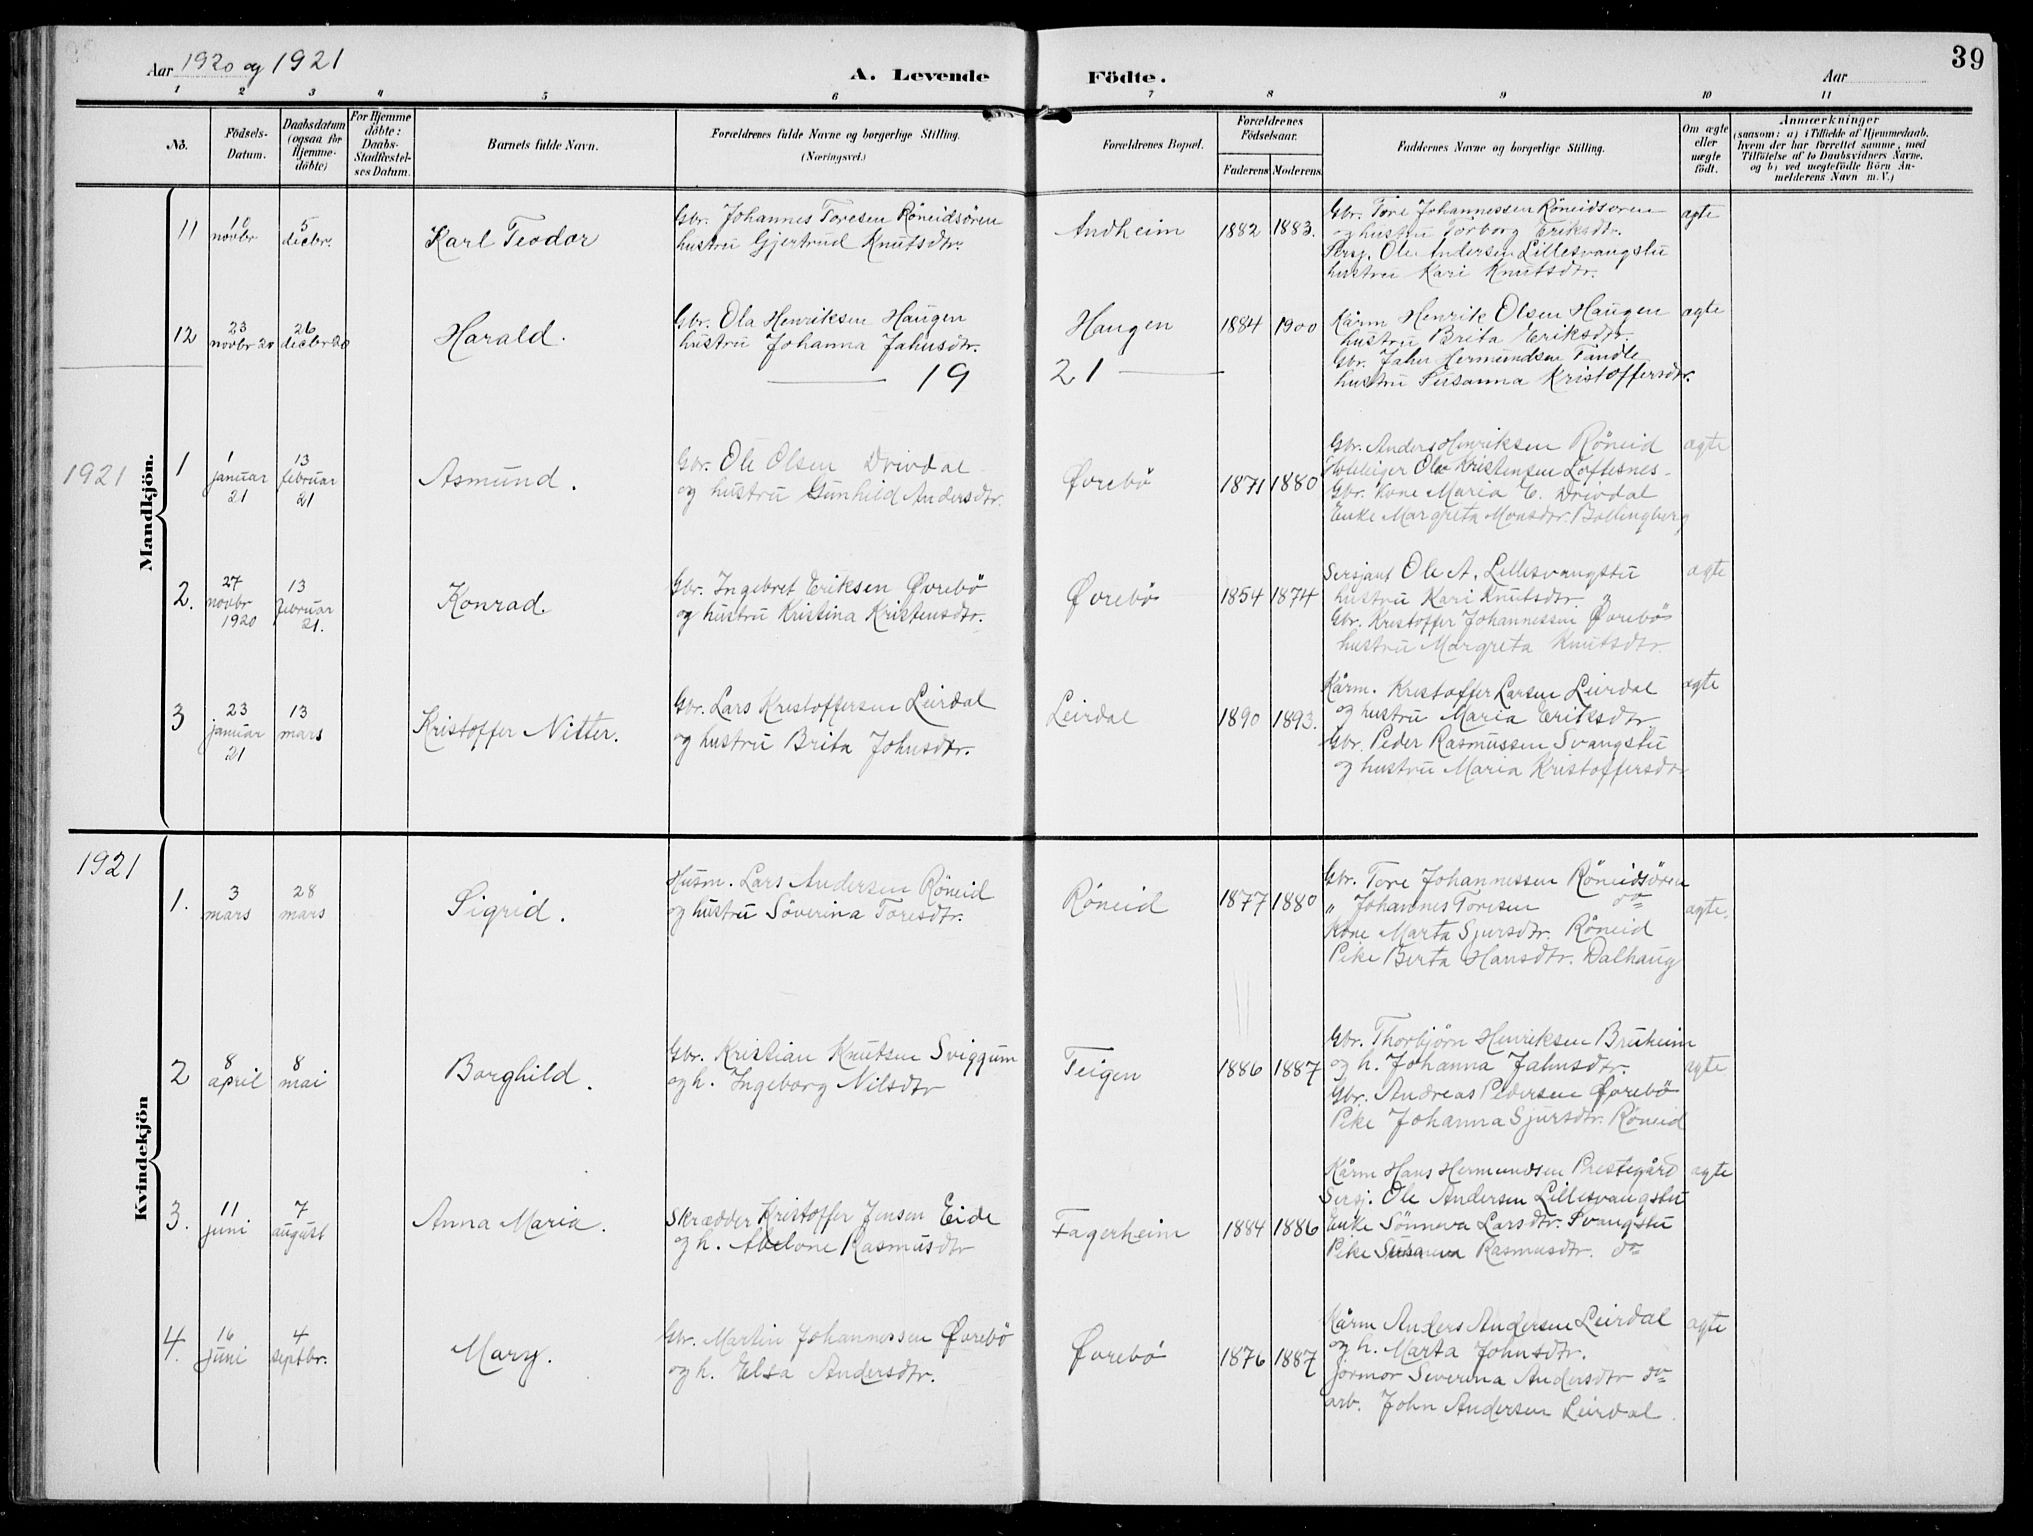 39
Aar 1920 og 1921
A. Levende Födte.
Aar
1 2 3 4 5 6 7 8 9 10 11
No.
Födsels-Datum.
Daabsdatum (ogsaa for Hjemme-döbte)
For Hjemme döbte: Daabs-Stadfæstel-ses Datum.
Barnets fulde Navn.
Forældrenes fulde Navne og borgerlige Stilling.
(Næringsvei.)
Forældrenes Bopæl.
Forældrenes Födselsaar.
Faderens Moderens
Faddernes Navne og borgerlige Stilling.
Om ægte eller uægte födt.
Anmærkninger
(saasom: a) i Tilfælde af Hjemmedaab, hvem der har forrettet samme, med Tilföielse af to Daabsvidners Navne, og b) ved uægtefödte Börn An-melderens Navn m. V.)
Mandkjön.
11
10 novbr
5 decbr.
Karl Teodor
Gbr. Johannes Toresen Röneidsören
hustru Gjertrud Knutsdtr.
Andheim
1882 1883.
Gbr. Tore Johannessen Röneidsören
og hustru Torborg Eriksdtr.
Sersj. Ole Andersen Lillesvangstu
hustru Kari Knutsdtr.
ægte
12
23 novbr 20
26 decbr 20
Harald.
Gbr. Ola Henriksen Haugen
hustru Johanna Jahnsdtr.
Haugen
1884 1900
Kårm Henrik Olsen Haugen
hustru Brita Eriksdtr.
Gbr. Jahn Hermundsen Fandle
hustru Susanna Kristoffersdtr.
ægte
19 21
1921
1
1 januar 21
13 februar 21
Asmund.
Gbr. Ole Olsen Drivdal
og hustru Gunhild Andersdtr.
Øvrebö
1871 1880
Gbr. Anders Henriksen Röneid
Ole Kristensen Loftesnes
Gbr. kone Maria E. Drivdal
Enke Margreta Monsdtr. Bollingberg
ægte
2.
27 novbr 1920
13 februar 21.
Konrad.
Gbr. Ingebret Eriksen Øvrebö
og hustru Kristina Kristensdtr.
Øvrebö
1854 1874
Sersjant Ole A. Lillesvangstu
hustru Kari Knutsdtr. "
Gbr. Kristoffer Johannessen Øvrebö
hustru Margreta Knutsdtr.
ægte
3
23 januar 21
13 mars
Kristoffer Nitter.
Gbr. Lars Kristoffersen Leirdal
og hustru Brita Johnsdtr.
Leirdal
1890 1893.
Kårm. Kristoffer Larsen Leirdal
og hustru Maria Eriksdtr.
Gbr. Peder Rasmussen Svangstu
og hustru Maria Kristoffersdtr
ægte
Kvindekjön
1921
1.
3 mars
28 mars
Sigrid.
Husm. Lars Andersen Röneid
og hustru Söverina Toresdtr.
Röneid
1877 1880
Gbr. Tore Johannessen Röneidsören
" Johannes Toresen do
Kone Marta Sjursdtr. Röneid
Pike Berta Hansdtr. Dalhaug
ægte.
2
8 april
8 mai
Borghild.
Gbr. Kristian Knutsen Sviggum
og h. Ingeborg Nilsdtr
Teigen
1886 1887
Gbr. Thorbjörn Henriksen Bruheim
og h. Johanna Jahnsdtr.
Gbr. Andreas Pedersen Øvrebö
Pike Johanna Sjursdtr. Röneid
ægte
3.
11 juni
7 august
Anna Maria.
Skrædder Kristoffer Jensen Eide
og h. Abelone Rasmusdtr
Fagerheim
1884 1886
Kårm Hans Hermundsen Prestegård
Sersj. Ole Andersen Lillesvangstu
Enke Sönneva Larsdtr. Svangstu
Pike Susanna Rasmusdtr. do
ægte
4.
16 juni
4 septbr.
Mary.
Gbr. Martin Johannessen Øvrebö
og h. Elsa Andersdtr.
Øvrebö
1876 1887
Kårm Anders Andersen Leirdal
og h. Marta Johnsdtr.
jormor Severina Andersdtr do
arb. John Andersen Leirdal.
ægte